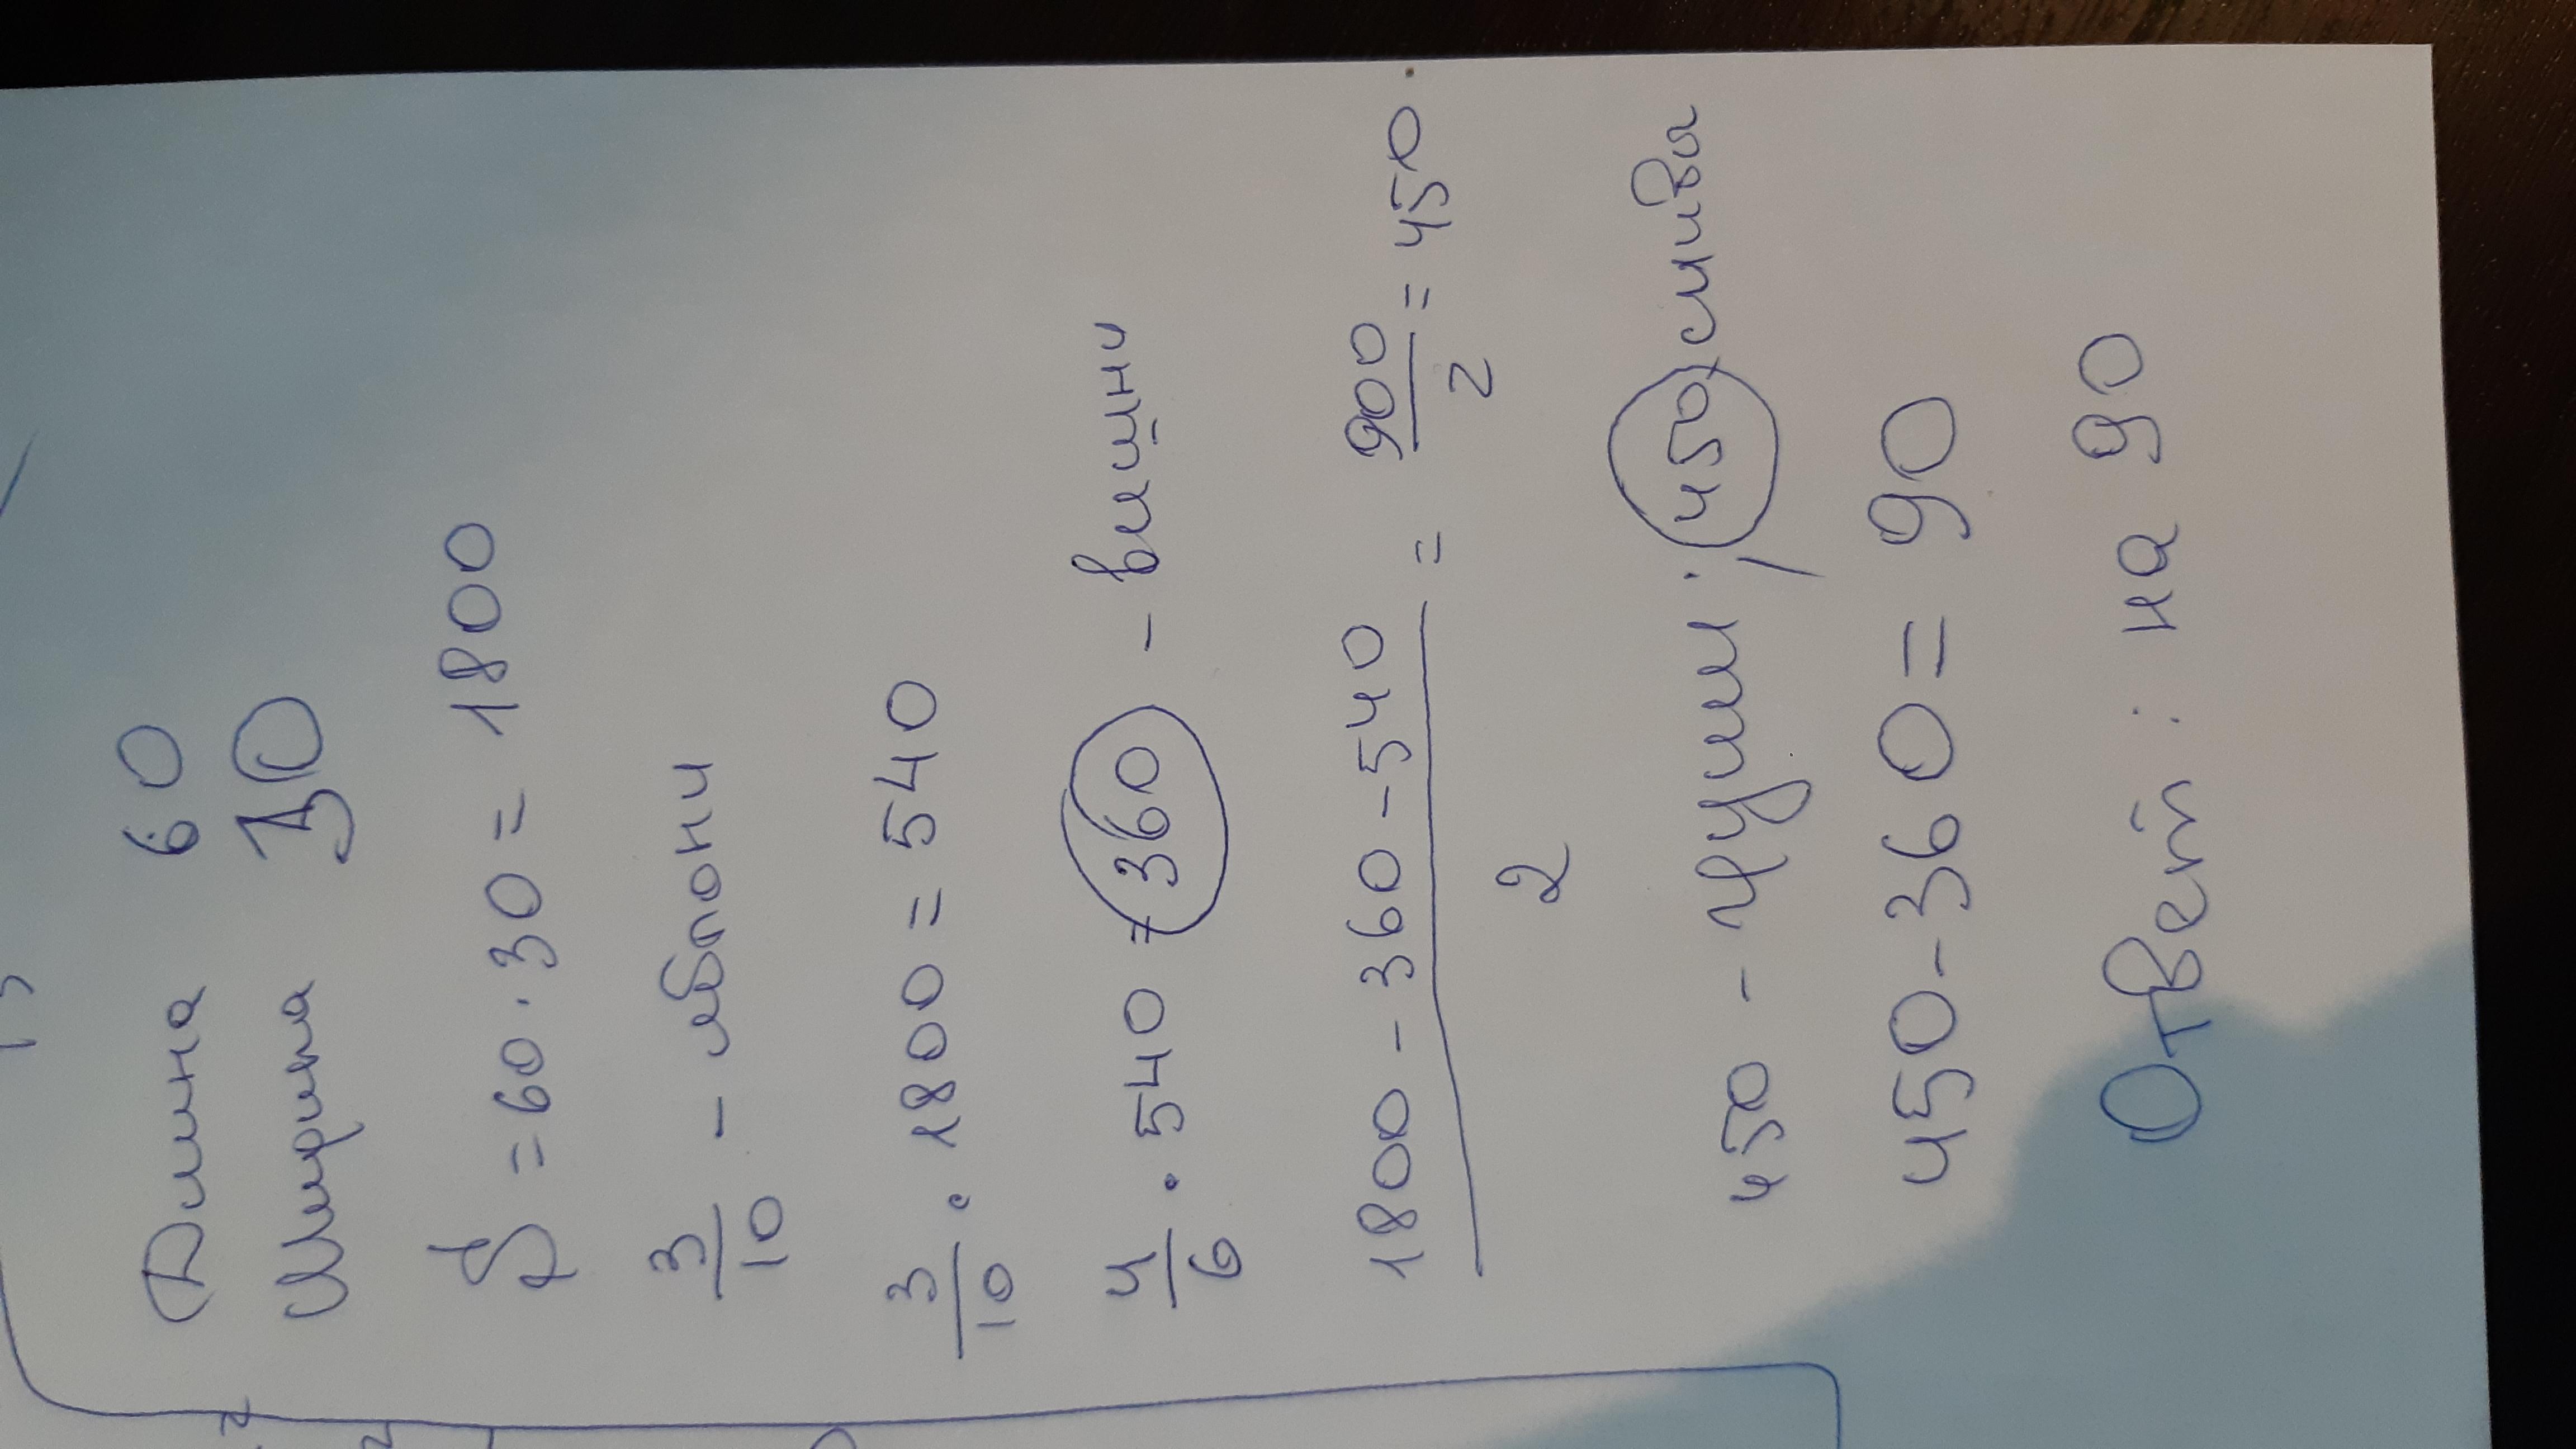 Длина 60
Ширина 30
S = 60 · 30 = 1800
3/10 - яблони
3/10 · 1800 = 540
4/6 · 540 = 360 - вишни
1800 - 360 - 540 / 2 = 900/2 = 450
450 - груши; 450 слива
450 - 360 = 90
Ответ: на 90